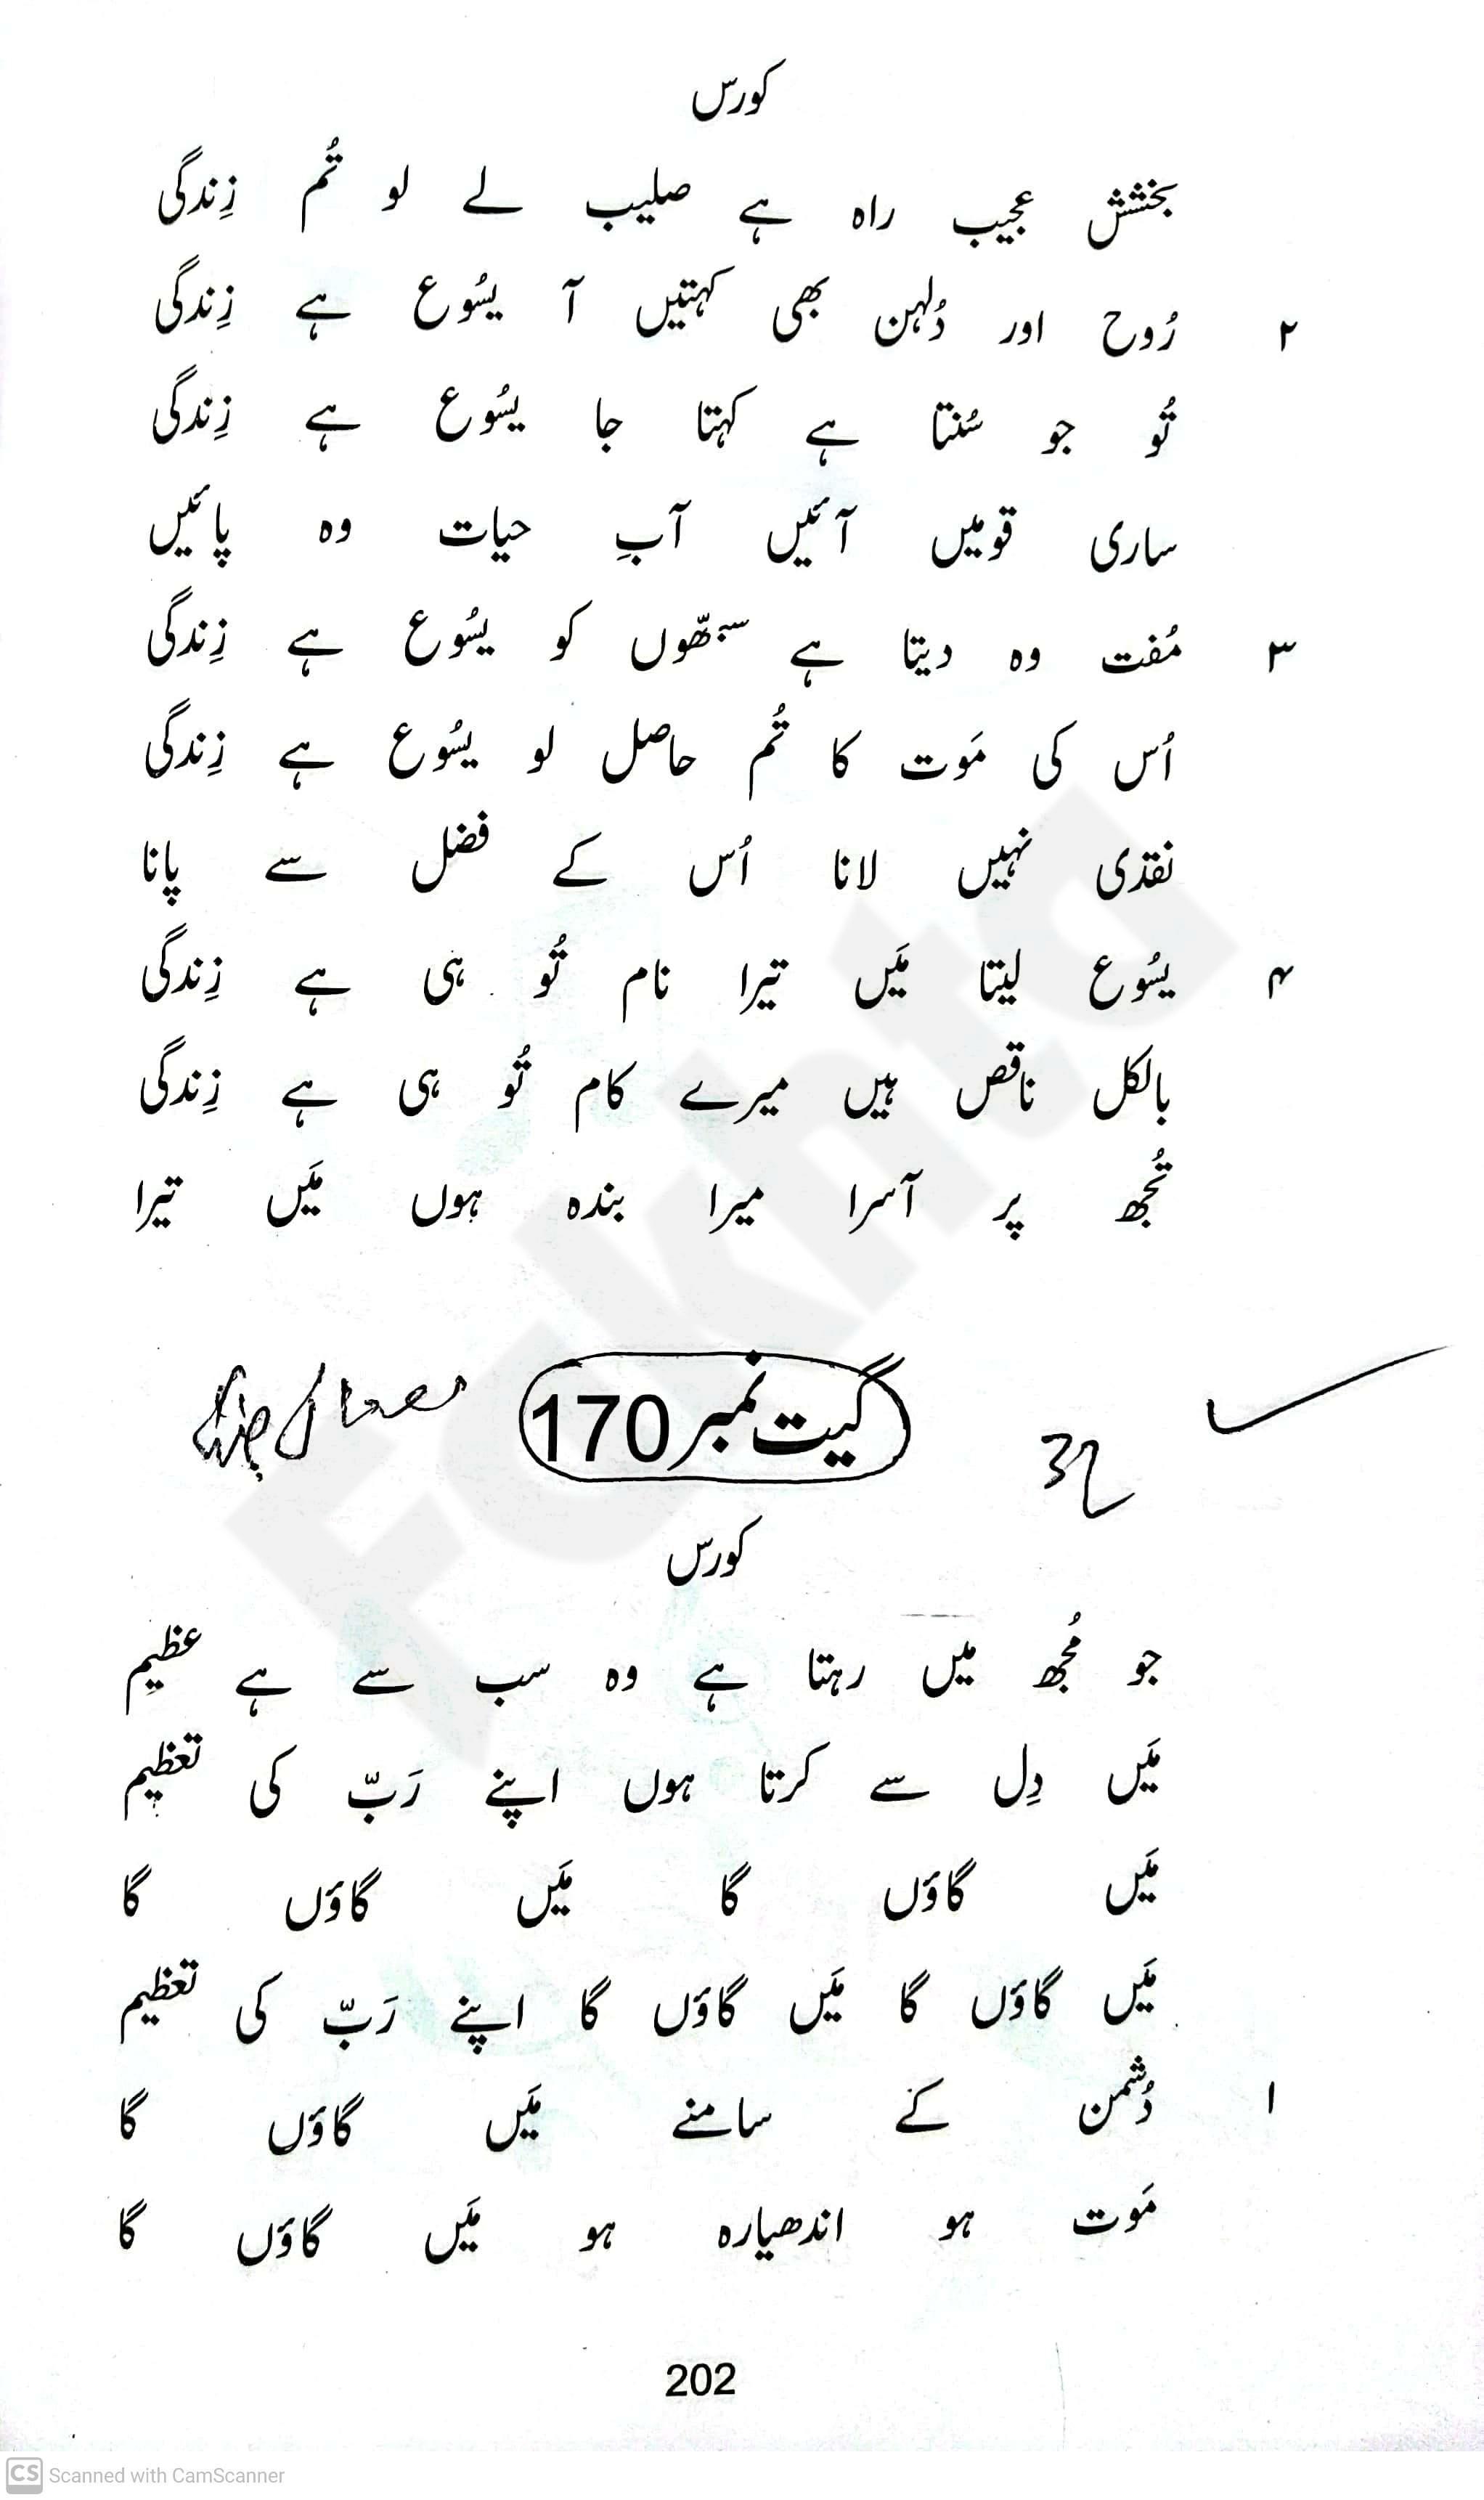 کورس
بخشش عجیب راہ ہے صلیب لے لو تُم زِندگی
۲ رُوح اور دُلہن بھی کہتیں آ یسُوع ہے زِندگی
تُو جو سُنتا ہے کہتا جا یسُوع ہے زِندگی
ساری قومیں آئیں آبِ حیات وہ پائیں
۳ مُفت وہ دیتا ہے سبھّوں کو یسُوع ہے زِندگی
اُس کی مَوت کا تُم حاصل لو یسُوع ہے زِندگی
نقدی نہیں لانا اُس کے فضل سے پانا
۴ یسُوع لیتا مَیں تیرا نام تُو ہی ہے زِندگی
بالکل ناقص ہیں میرے کام تُو ہی ہے زِندگی
تُجھ پر آسرا میرا بندہ ہوں مَیں تیرا
گیت نمبر 170
کورس
جو مُجھ میں رہتا ہے وہ سب سے ہے عظِیم
مَیں دِل سے کرتا ہوں اپنے رَبّ کی تعظیم
مَیں گاؤں گا مَیں گاؤں گا
مَیں گاؤں گا مَیں گاؤں گا اپنے رَبّ کی تعظیم
۱ دُشمن کے سامنے مَیں گاؤں گا
مَوت ہو اندھیارہ ہو مَیں گاؤں گا
202
CS Scanned with CamScanner